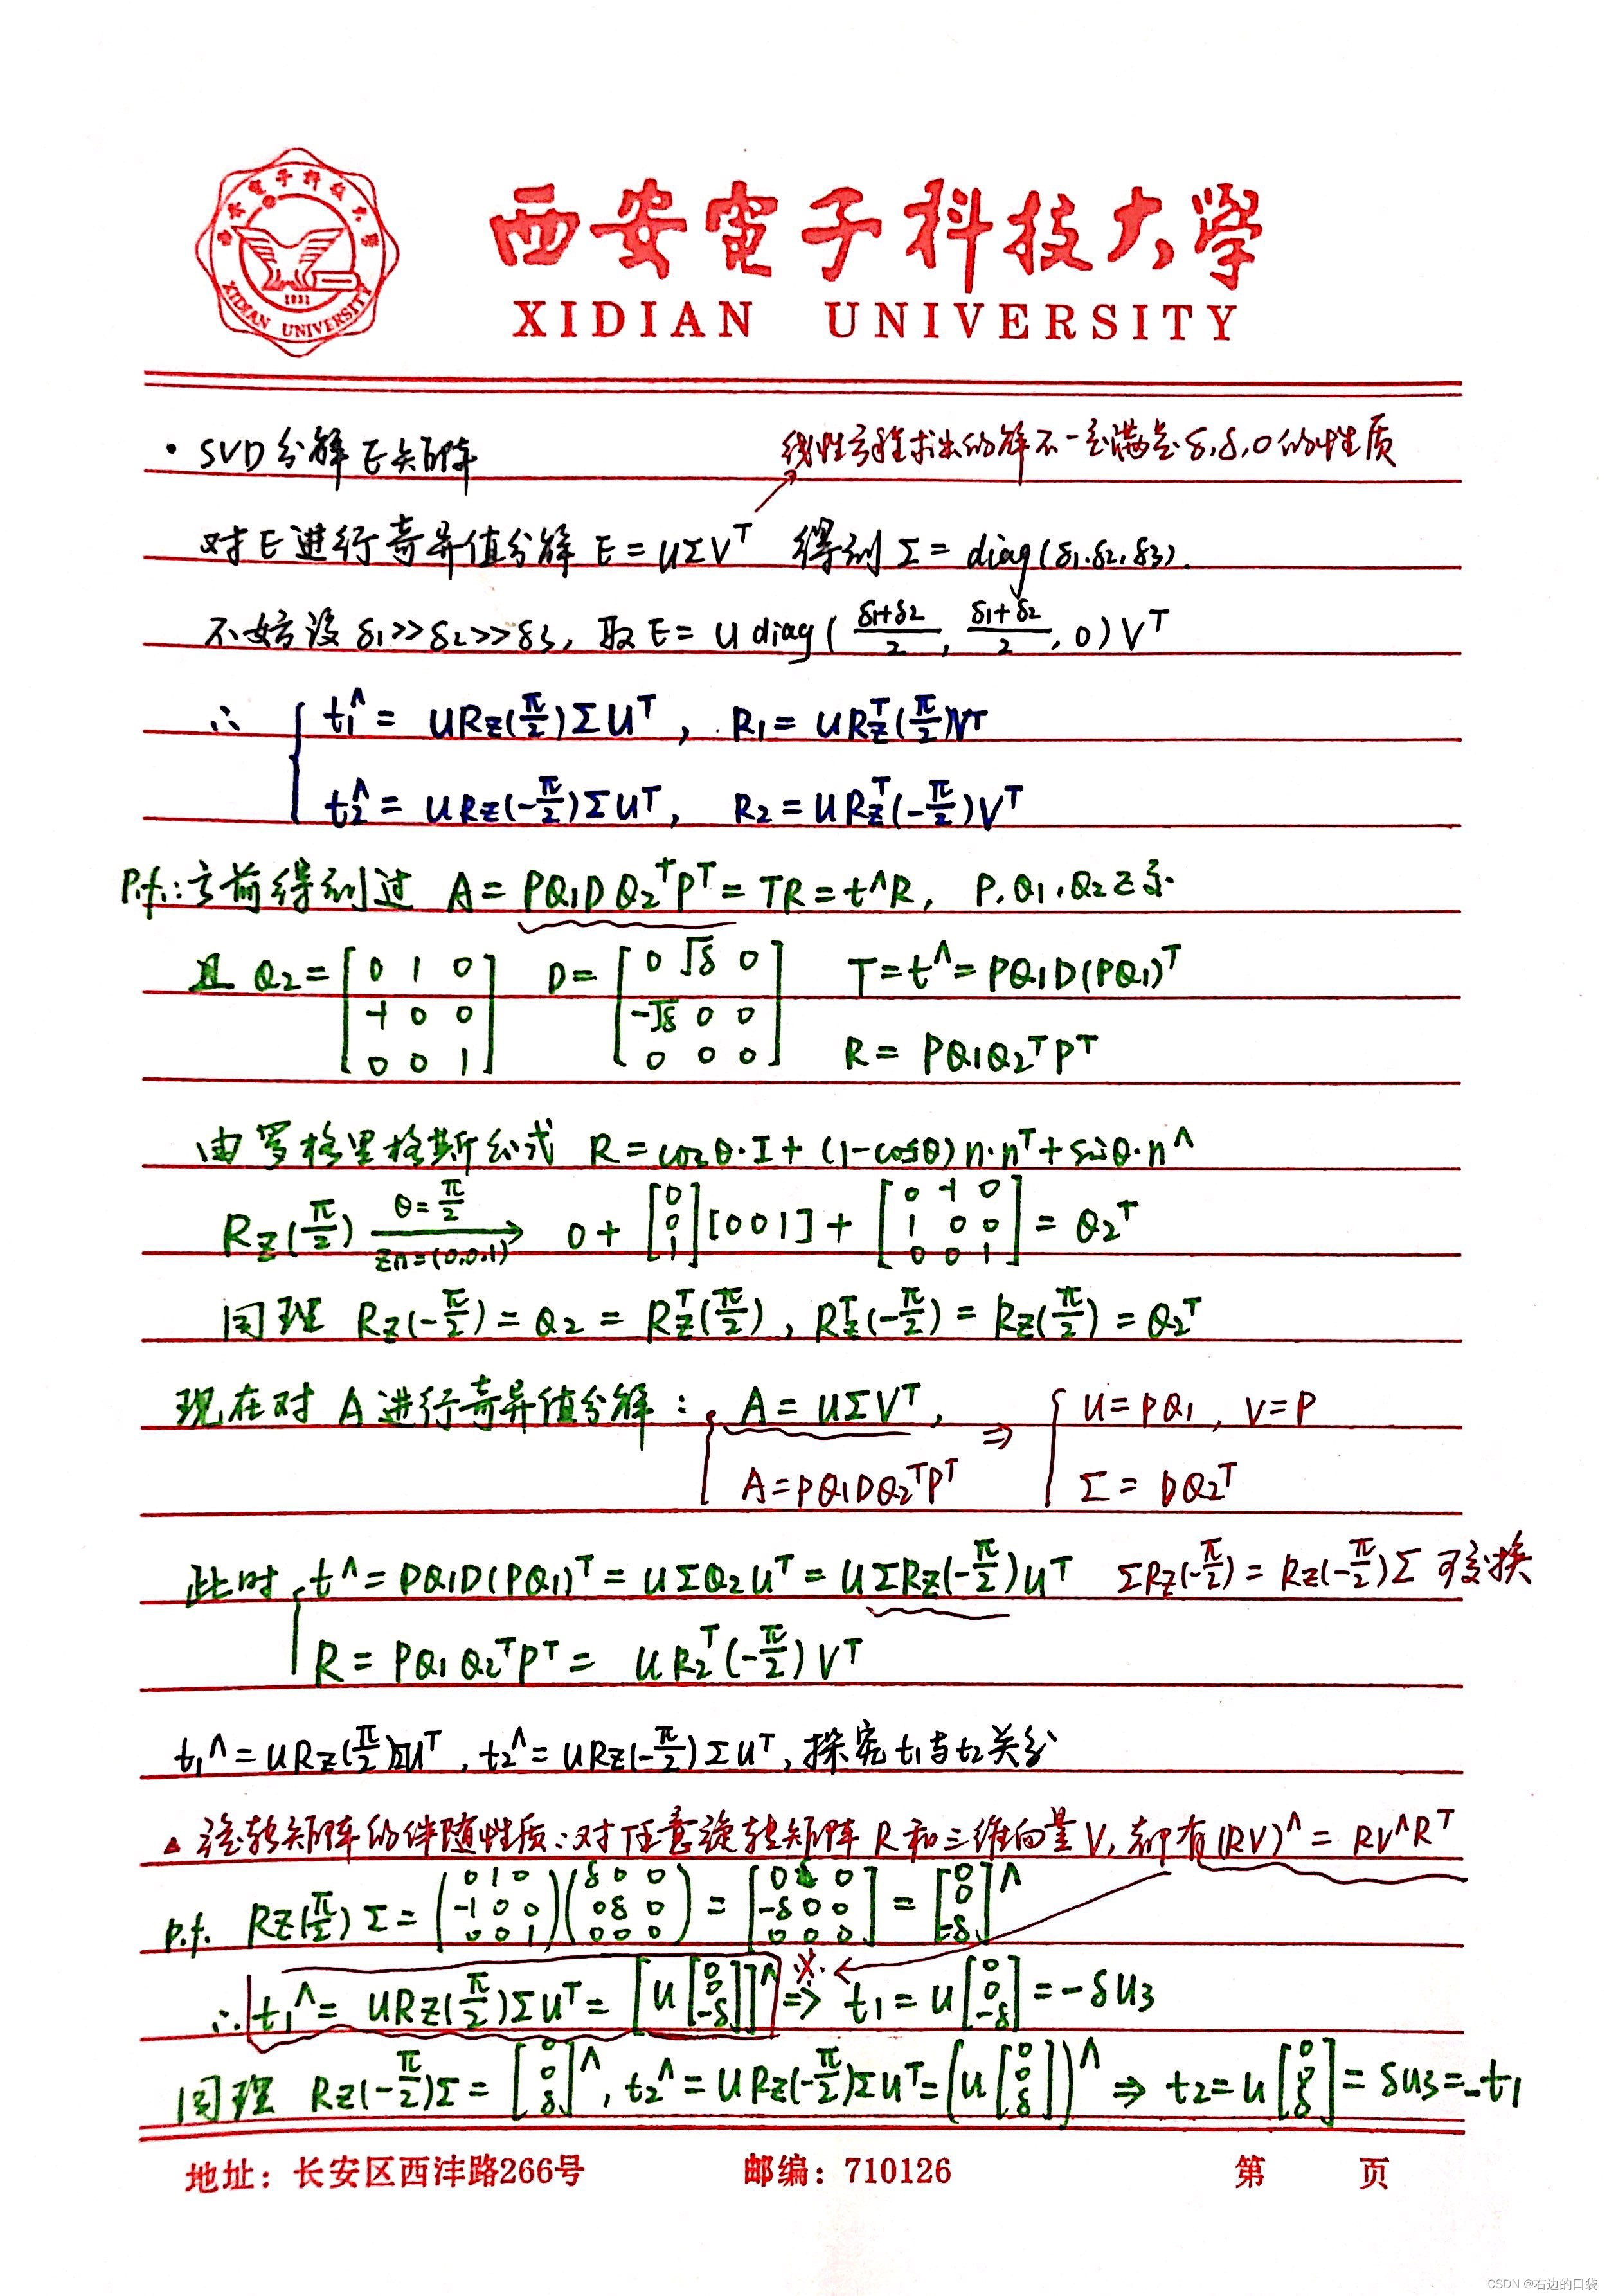 西安電子科技大学
XIDIAN UNIVERSITY
1931
XIDIAN UNIVERSITY
· SVD分解E矩阵
线性方程求出的解不一定满足δ,δ,0的性质
对E进行奇异值分解 E=UΣVᵀ 得到Σ=diag(δ1.δ2,δ3).
不妨设δ1>>δ2>>δ3, 取E=U diag(δ1+δ2/2, δ1+δ2/2, 0)Vᵀ
∴ { t1^ = URz(π/2)ΣUᵀ, R1=URzᵀ(π/2)Vᵀ
t2^ = URz(-π/2)ΣUᵀ, R2=URzᵀ(-π/2)Vᵀ
P.f.:之前得到过 A=PQ1DQ2ᵀPᵀ=TR=t^R, P.Q1.Q2正交.
且 Q2=[0 1 0; -1 0 0; 0 0 1] D=[0 √δ 0; -√δ 0 0; 0 0 0] T=t^=PQ1D(PQ1)ᵀ
R=PQ1Q2ᵀPᵀ
由罗格里格斯公式 R=cosθ·I+(1-cosθ)n·nᵀ+sinθ·n^
Rz(π/2) θ=π/2 zn=(0,0,1) → 0+[0; 0; 1][0 0 1]+[0 -1 0; 1 0 0; 0 0 1]=Q2ᵀ
同理 Rz(-π/2)=Q2=Rzᵀ(π/2), Rzᵀ(-π/2)=Rz(π/2)=Q2ᵀ
现在对A进行奇异值分解: { A=UΣVᵀ, ⇒ { U=PQ1, V=P
A=PQ1DQ2ᵀPᵀ Σ=DQ2ᵀ
此时 { t^=PQ1D(PQ1)ᵀ=UΣQ2Uᵀ=UΣRz(-π/2)Uᵀ ΣRz(-π/2)=Rz(-π/2)Σ 可交换
R=PQ1Q2ᵀPᵀ=UR2ᵀ(-π/2)Vᵀ
t1^=URz(π/2)ΣUᵀ, t2^=URz(-π/2)ΣUᵀ, 探究t1与t2关系
△ 旋转矩阵的伴随性质:对任意旋转矩阵R和三维向量V,都有(RV)^=RV^Rᵀ
p.f. Rz(π/2)Σ=(0 1 0; -1 0 0; 0 0 1)(δ 0 0; 0 δ 0; 0 0 0)=[0 δ 0; -δ 0 0; 0 0 0]=[0; 0; -δ]^
∴ t1^=URz(π/2)ΣUᵀ=[U[0; 0; -δ]]^ ※ ⇒ t1=U[0; 0; -δ]=-δu3
同理 Rz(-π/2)Σ=[0; 0; δ]^, t2^=URz(-π/2)ΣUᵀ=(U[0; 0; δ])^ ⇒ t2=U[0; 0; δ]=δu3=-t1
地址：长安区西沣路266号 邮编：710126 第 页
CSDN @右边的口袋